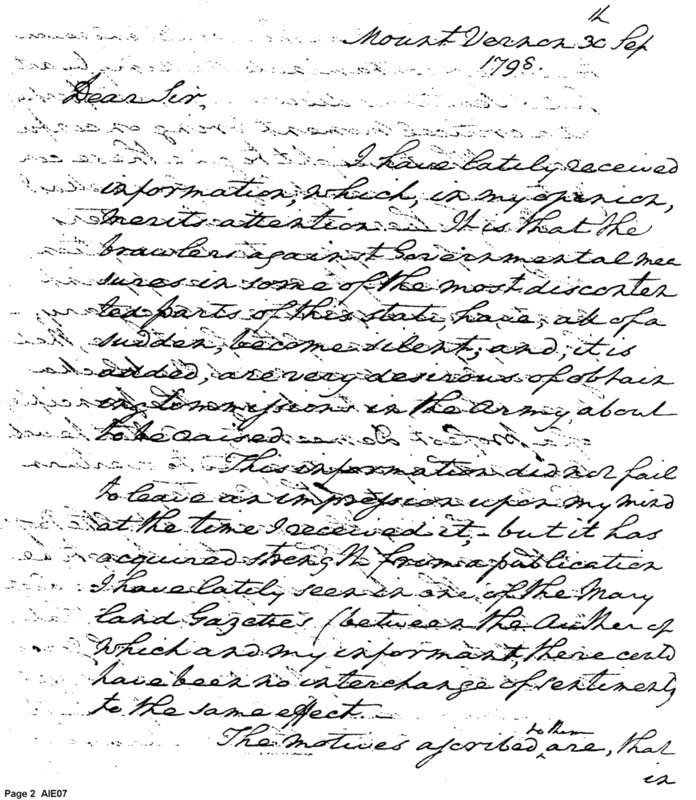 Mount Vernon 30th Sep
1798.
Dear Sir,
I have lately received
information, which, in my opinion,
merits attention.— It is that the
brawlers against Governmental mea
sures in some of the most disconten
ted parts of this state, have, all of a
sudden, become silent; and, it is
added, are very desirous of obtain
ing Commissions in the Army, about
to be raised.
This information did not fail
to leave an impression upon my mind
at the time I received it;- but it has
acquired strength from a publication
I have lately seen in one of the Mary
land Gazettes (between the Author of
which and my informant, there could
have been no interchange of sentiments
to the same effect.—
The motives ascribed to them are, that
in
Page 2 AIE07